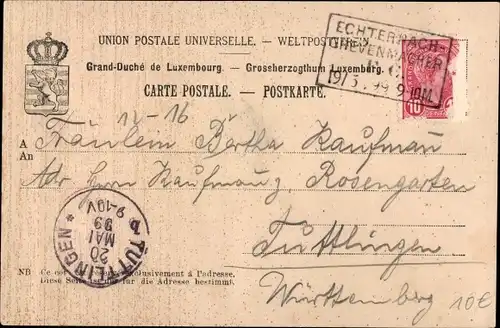 UNION POSTALE UNIVERSELLE. – WELTPOSTVEREIN
Grand-Duché de Luxembourg. – Grossherzogthum Luxemberg.
CARTE POSTALE. – POSTKARTE.
ECHTERNACH-
GREVENMACHER
19/5 99 9
10
12-16
A
An
Fräulein Bertha Kaufmann
Adr Herr Kaufmann, Rosengarten
Tuttlingen
Württemberg
TUTTLINGEN
20
MAI
99
9-10V
b
NB Ce côté est exclusivement à l'adresse.
Diese Seite ist nur für die Adresse bestimmt.
10€